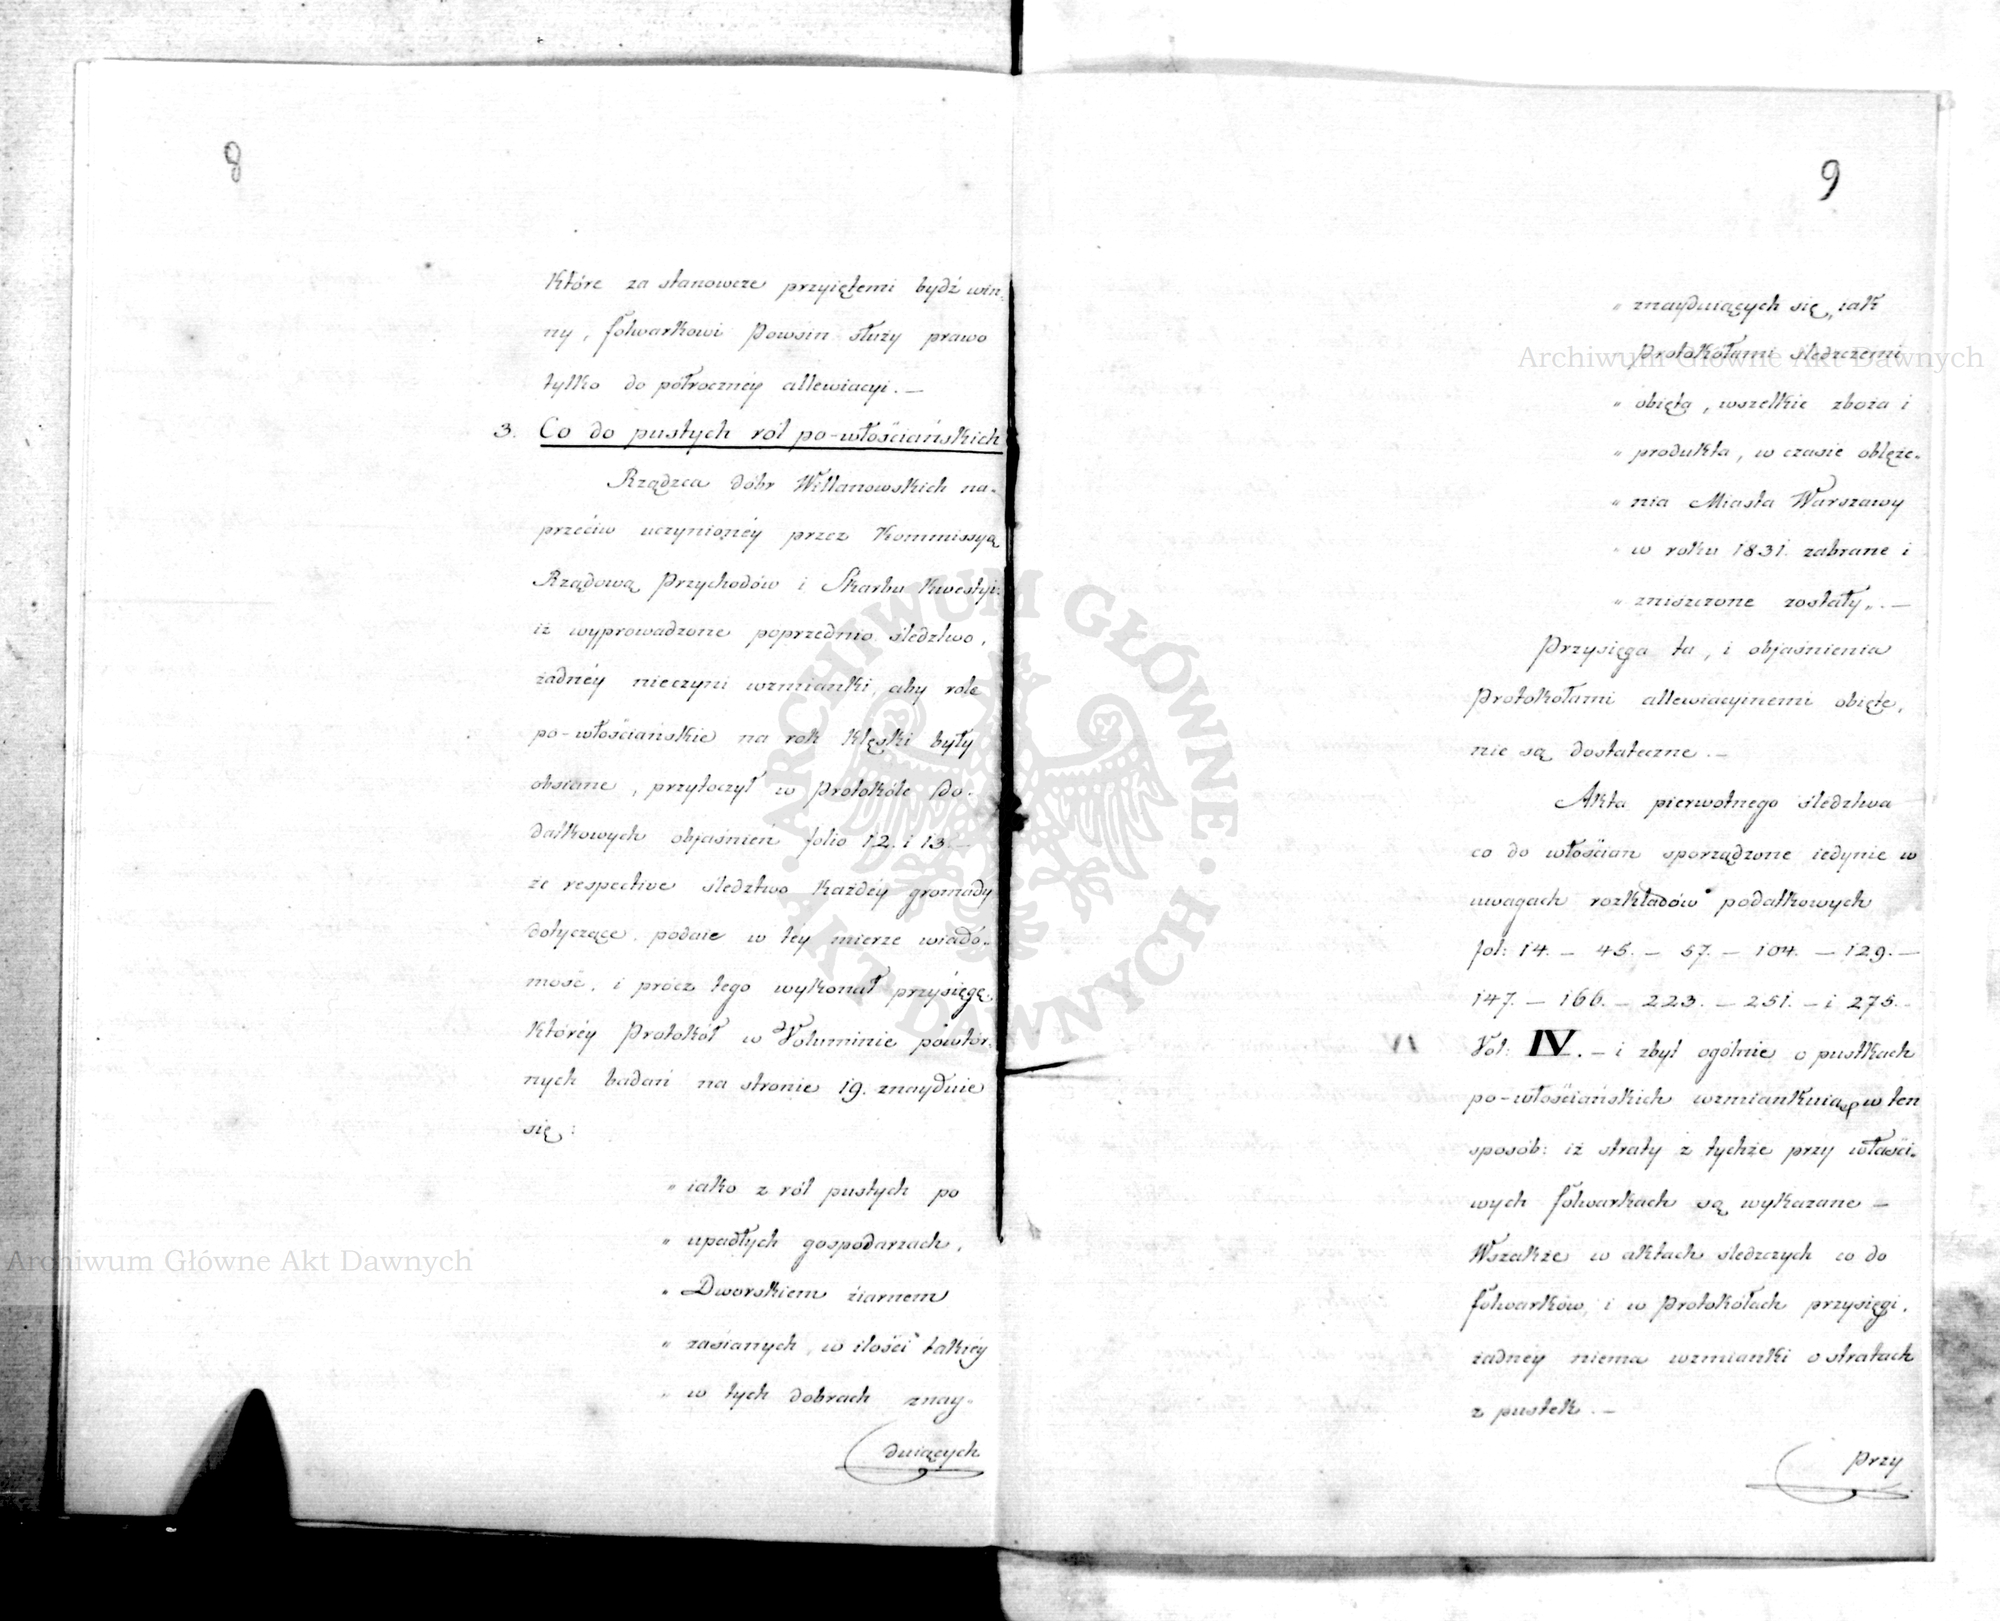 8
które za stanowcze przyiętemi bydź win-
ny, folwarkowi Powsin służy prawo
tylko do półrocznéy allewiacyi. —
3. Co do pustych ról po-włościańskich
Rządzca dóbr Willanowskich na-
przećiw uczynionéy przez Kommissyą
Rządową Przychodów i Skarbu kwestyi:
iż wyprowadzone poprzednio śledztwo,
żadnéy nieczyni wzmianki, aby role
po-włościańskie na rok klęski były
obsiane, przytoczył w Protokóle do-
datkowych objaśnień folio 12. i 13. —
że respective śledztwo każdéy gromady
dotyczące, podaie w téy mierze wiado-
mość, i prócz tego wykonał przysięgę,
któréy Protokół w Voluminie powtór-
nych badań na stronie 19. znayduie
się:
„ iako z ról pustych po
„ upadłych gospodarzach,
„ Dworskiem źiarnem
„ zasianych, w ilości takiéy
„ w tych dobrach znay-
duiących
9
„ znayduiących się, iak
Protokółami śledczemi
„ obięta, wszelkie zboża i
„ produkta, w czasie oblęże-
„ nia Miasta Warszawy
„ w roku 1831. zabrane i
„ zniszczone zostały„. —
Przysięga ta, i objaśnienia
Protokołami allewiacyinemi obięte,
nie są dostateczne. —
Akta pierwotnego śledztwa
co do włościan sporządzone iedynie w
uwagach rozkładów podatkowych
fol: 14. — 45. — 57. — 104. — 129. —
147. — 166. — 223. — 251. — i 275. —
Vol: IV. — i zbyt ogólnie o pustkach
po-włościańskich wzmiankuią w ten
sposób: iż straty z tychże przy właści-
wych folwarkach są wykazane —
Wszakże w aktach śledczych co do
folwarków, i w Protokółach przysięgi,
żadnéy niema wzmianki o stratach
z pustek. —
Przy
Archiwum Główne Akt Dawnych
Archiwum Główne Akt Dawnych
ARCHIWUM GŁÓWNE · AKT DAWNYCH ·